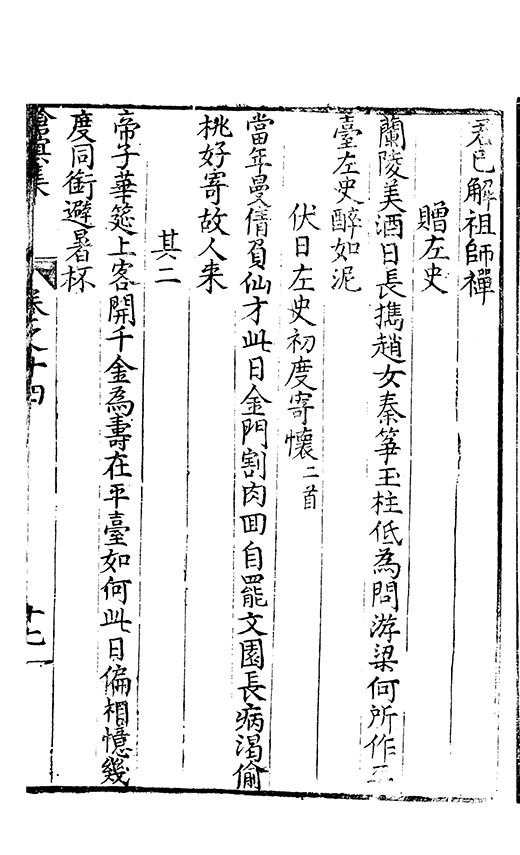 已解祖師禪
贈左史
蘭陵美酒日長擕趙女秦筝玉柱低為問游梁何所作
臺左史醉如泥
伏日左史初度寄懷二首
當年曼倩負仙才此日金門割肉回自罷文園長病渴偷
桃好寄故人来
其二
帝子華筵上客開千金為壽在平臺如何此日偏相憶幾
度同銜避暑杯
滄溟集 卷之十四 十七